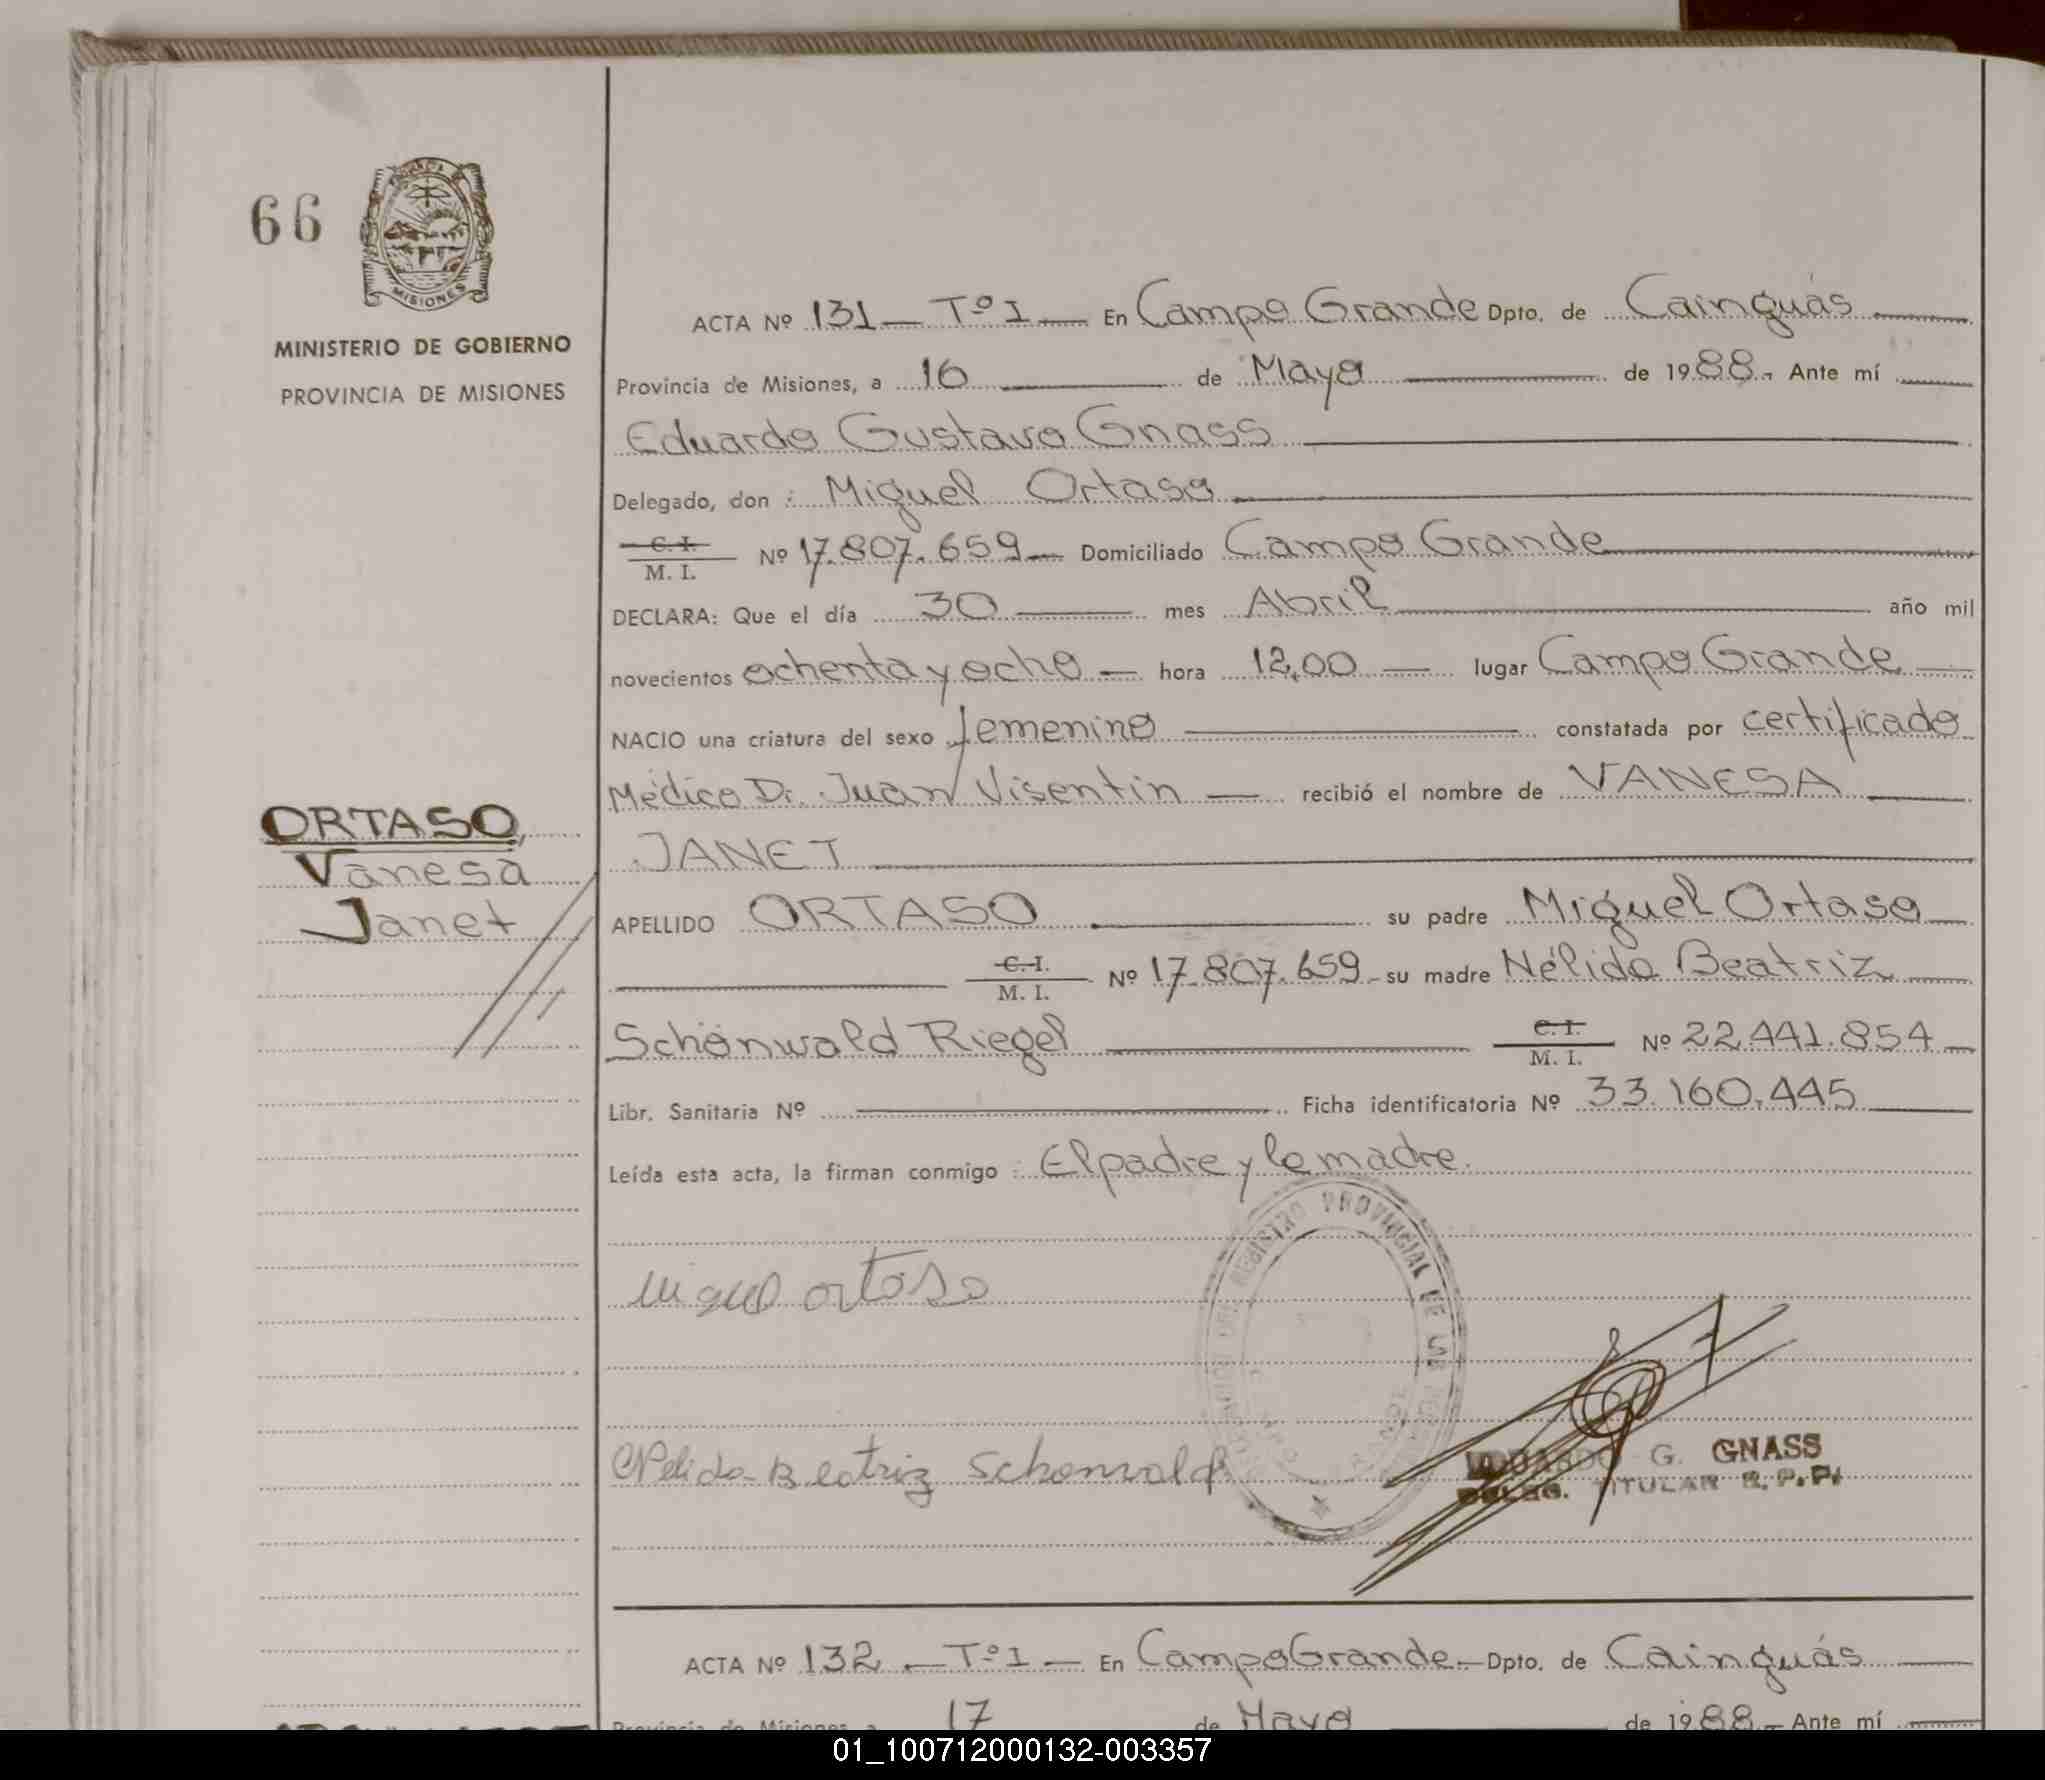 66
PROVINCIA DE
MISIONES
MINISTERIO DE GOBIERNO
PROVINCIA DE MISIONES
ACTA Nº 131 — Tº I — En Campo Grande Dpto. de Cainguás
Provincia de Misiones, a 16 de Mayo de 1988.- Ante mí
Eduardo Gustavo Gnass
Delegado, don : Miguel Ortaso
C. I.
M. I. Nº 17.807.659 — Domiciliado Campo Grande
DECLARA: Que el día 30 mes Abril año mil
novecientos ochenta y ocho — hora 12,00 — lugar Campo Grande
NACIO una criatura del sexo femenino constatada por certificado
Médico Dr. Juan Visentin — recibió el nombre de VANESA
JANET
ORTASO,
Vanesa
Janet
APELLIDO ORTASO su padre Miguel Ortaso
C. I.
M. I. Nº 17.807.659 - su madre Nélida Beatriz
Schönwald Riegel C. I.
M. I. Nº 22.441.854
Libr. Sanitaria Nº Ficha identificatoria Nº 33.160.445
Leída esta acta, la firman conmigo : El padre y la madre.
REGISTRO PROVINCIAL DE LAS
Miguel ortaso
Nelida Beatriz Schonwald
EDUARDO G. GNASS
DELEG. TITULAR R. P. P.
ACTA Nº 132 — Tº I — En Campo Grande — Dpto. de Cainguás
Provincia de Misiones, a 17 de Mayo de 1988.- Ante mí
01_100712000132-003357